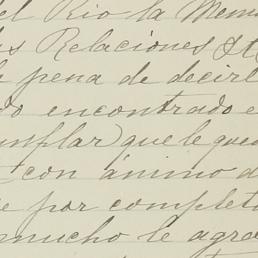 del Rio la Mem
las Relaciones &
la pena de decirl
do encontrado e
mplar) que le que
con ánimo d
e por completo
mucho le agra